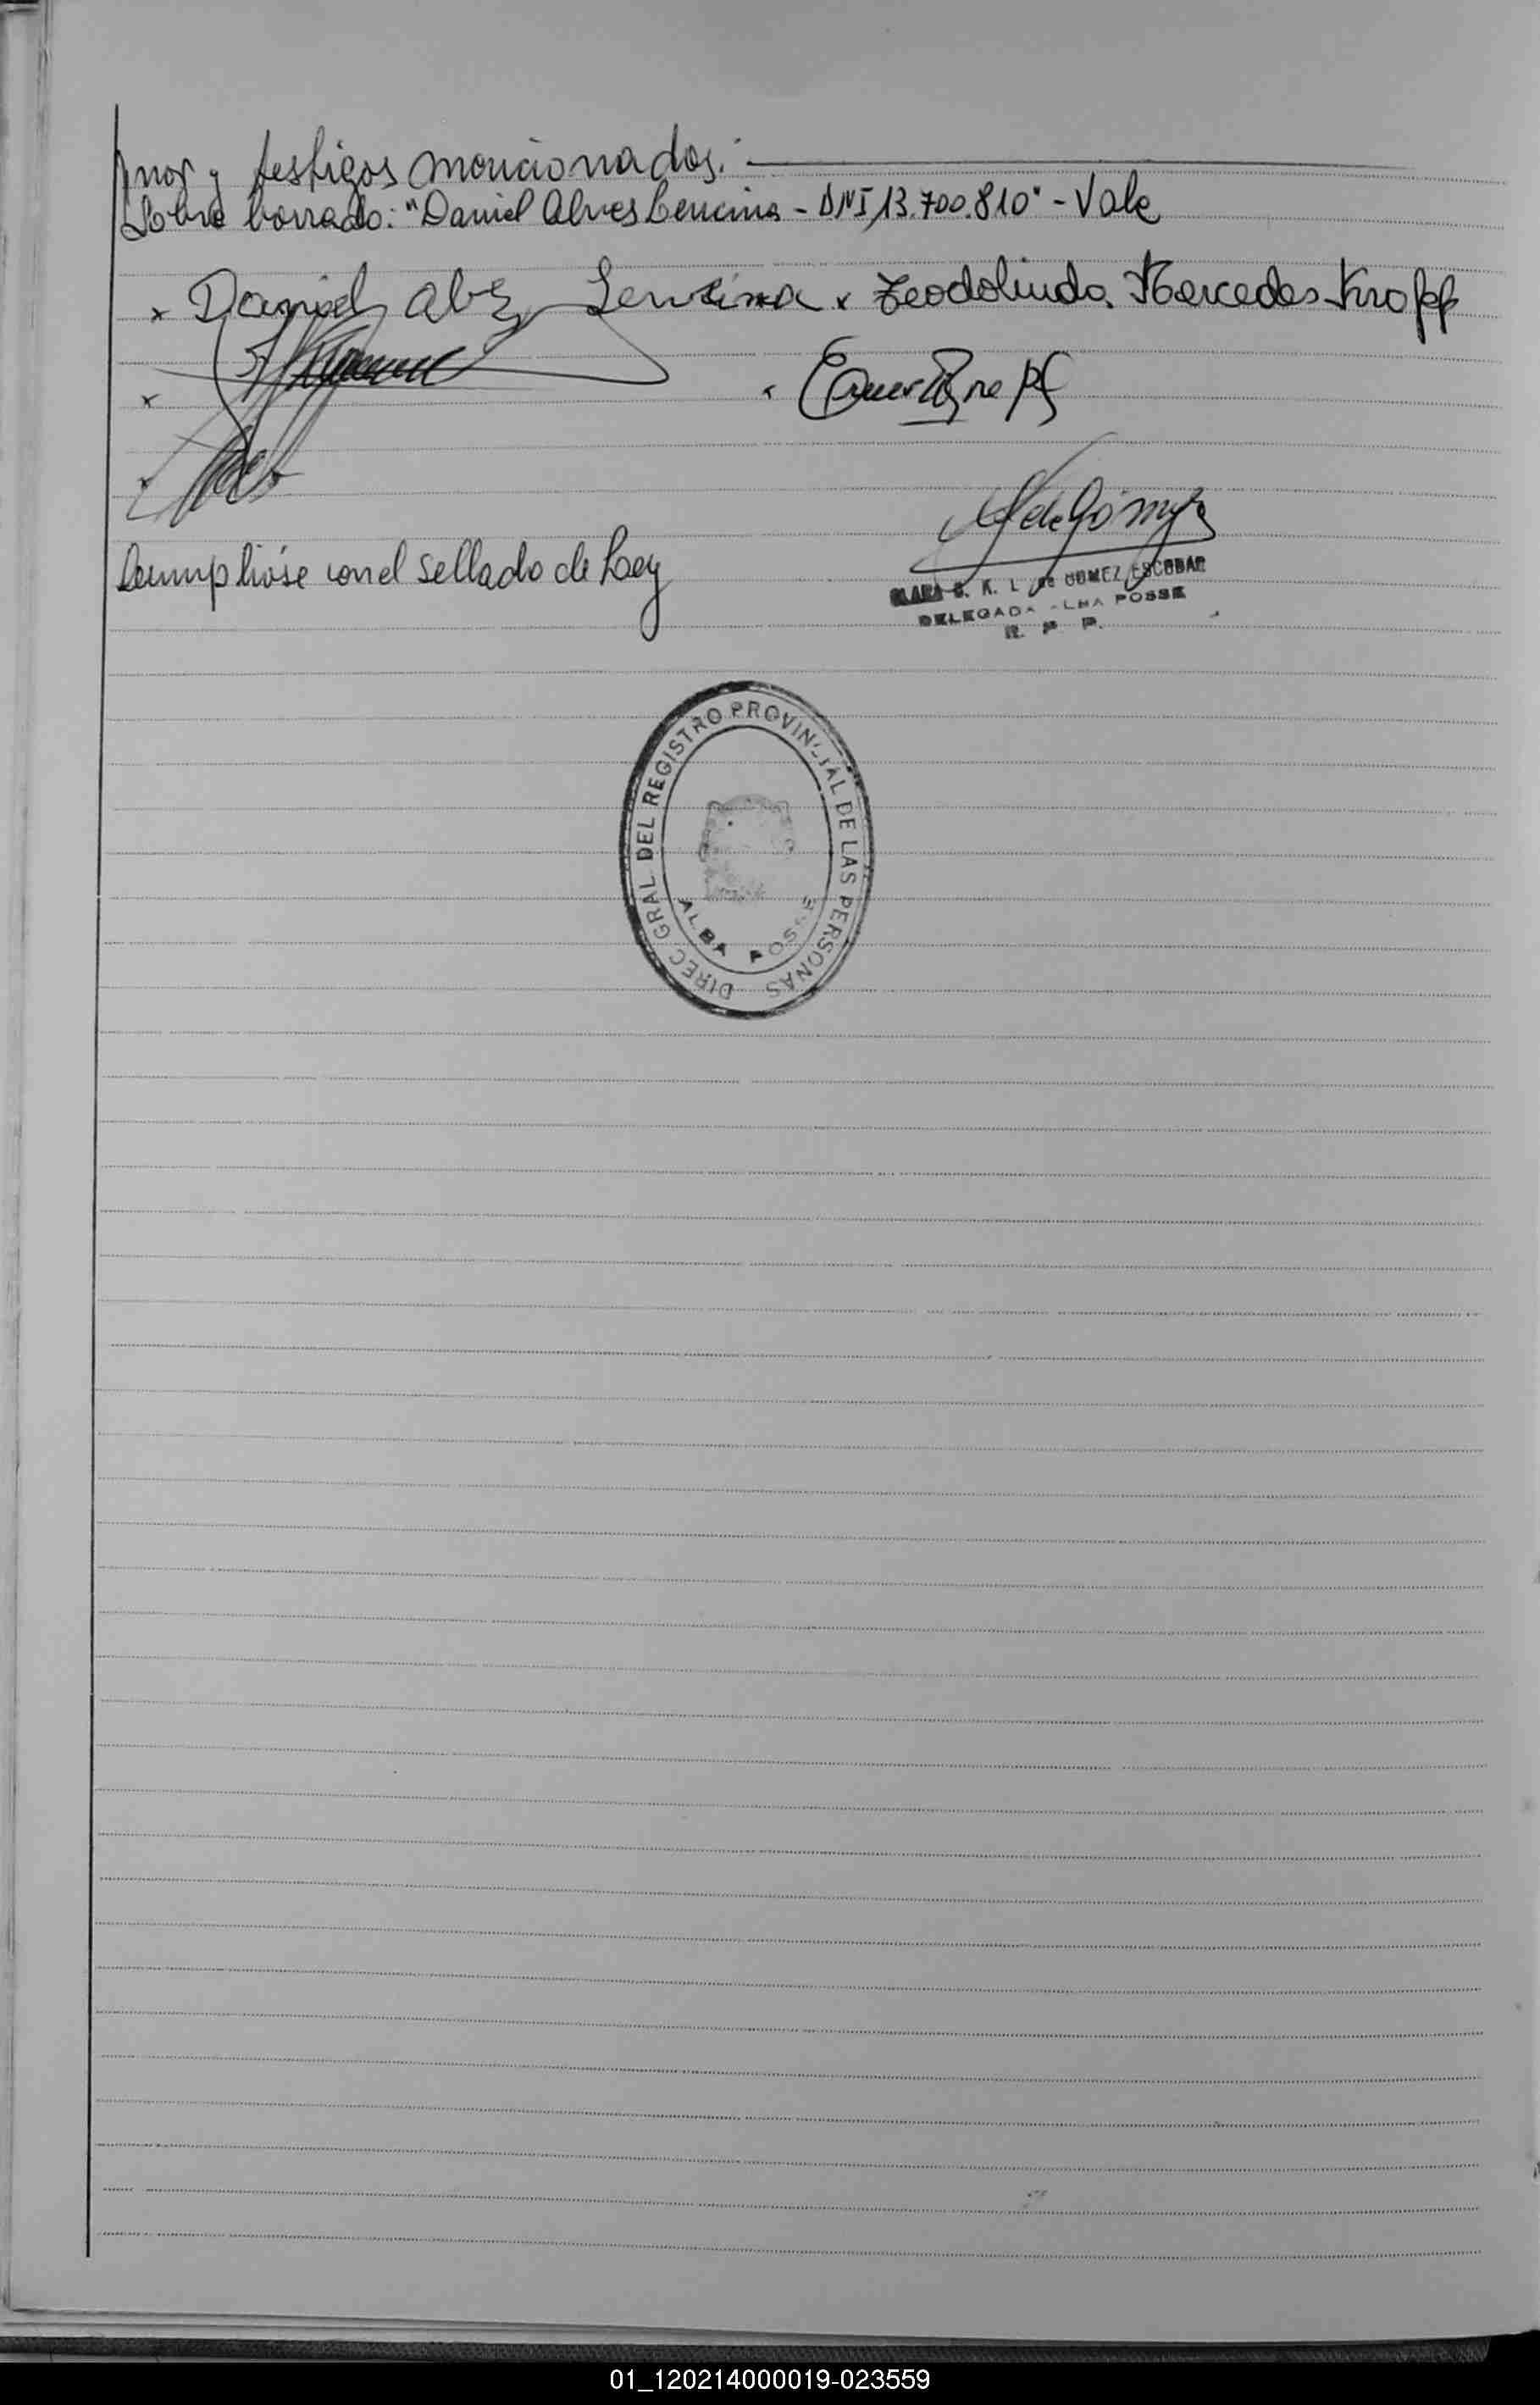 nor y testigos mencionados.-
Sobre borrado: "Daniel Alves Lencina - DNI 13.700.810" - Vale
x Daniel Alvez Lencina x Teodolinda Mercedes Kropf
x
x
de Gómez
Cumplióse con el sellado de Ley
CLARA S. K. L. de GOMEZ ESCOBAR
DELEGADA ALBA POSSE
R. P. P.
DIREC GRAL DEL REGISTRO PROVINCIAL DE LAS PERSONAS
ALBA POSSE
01_120214000019-023559